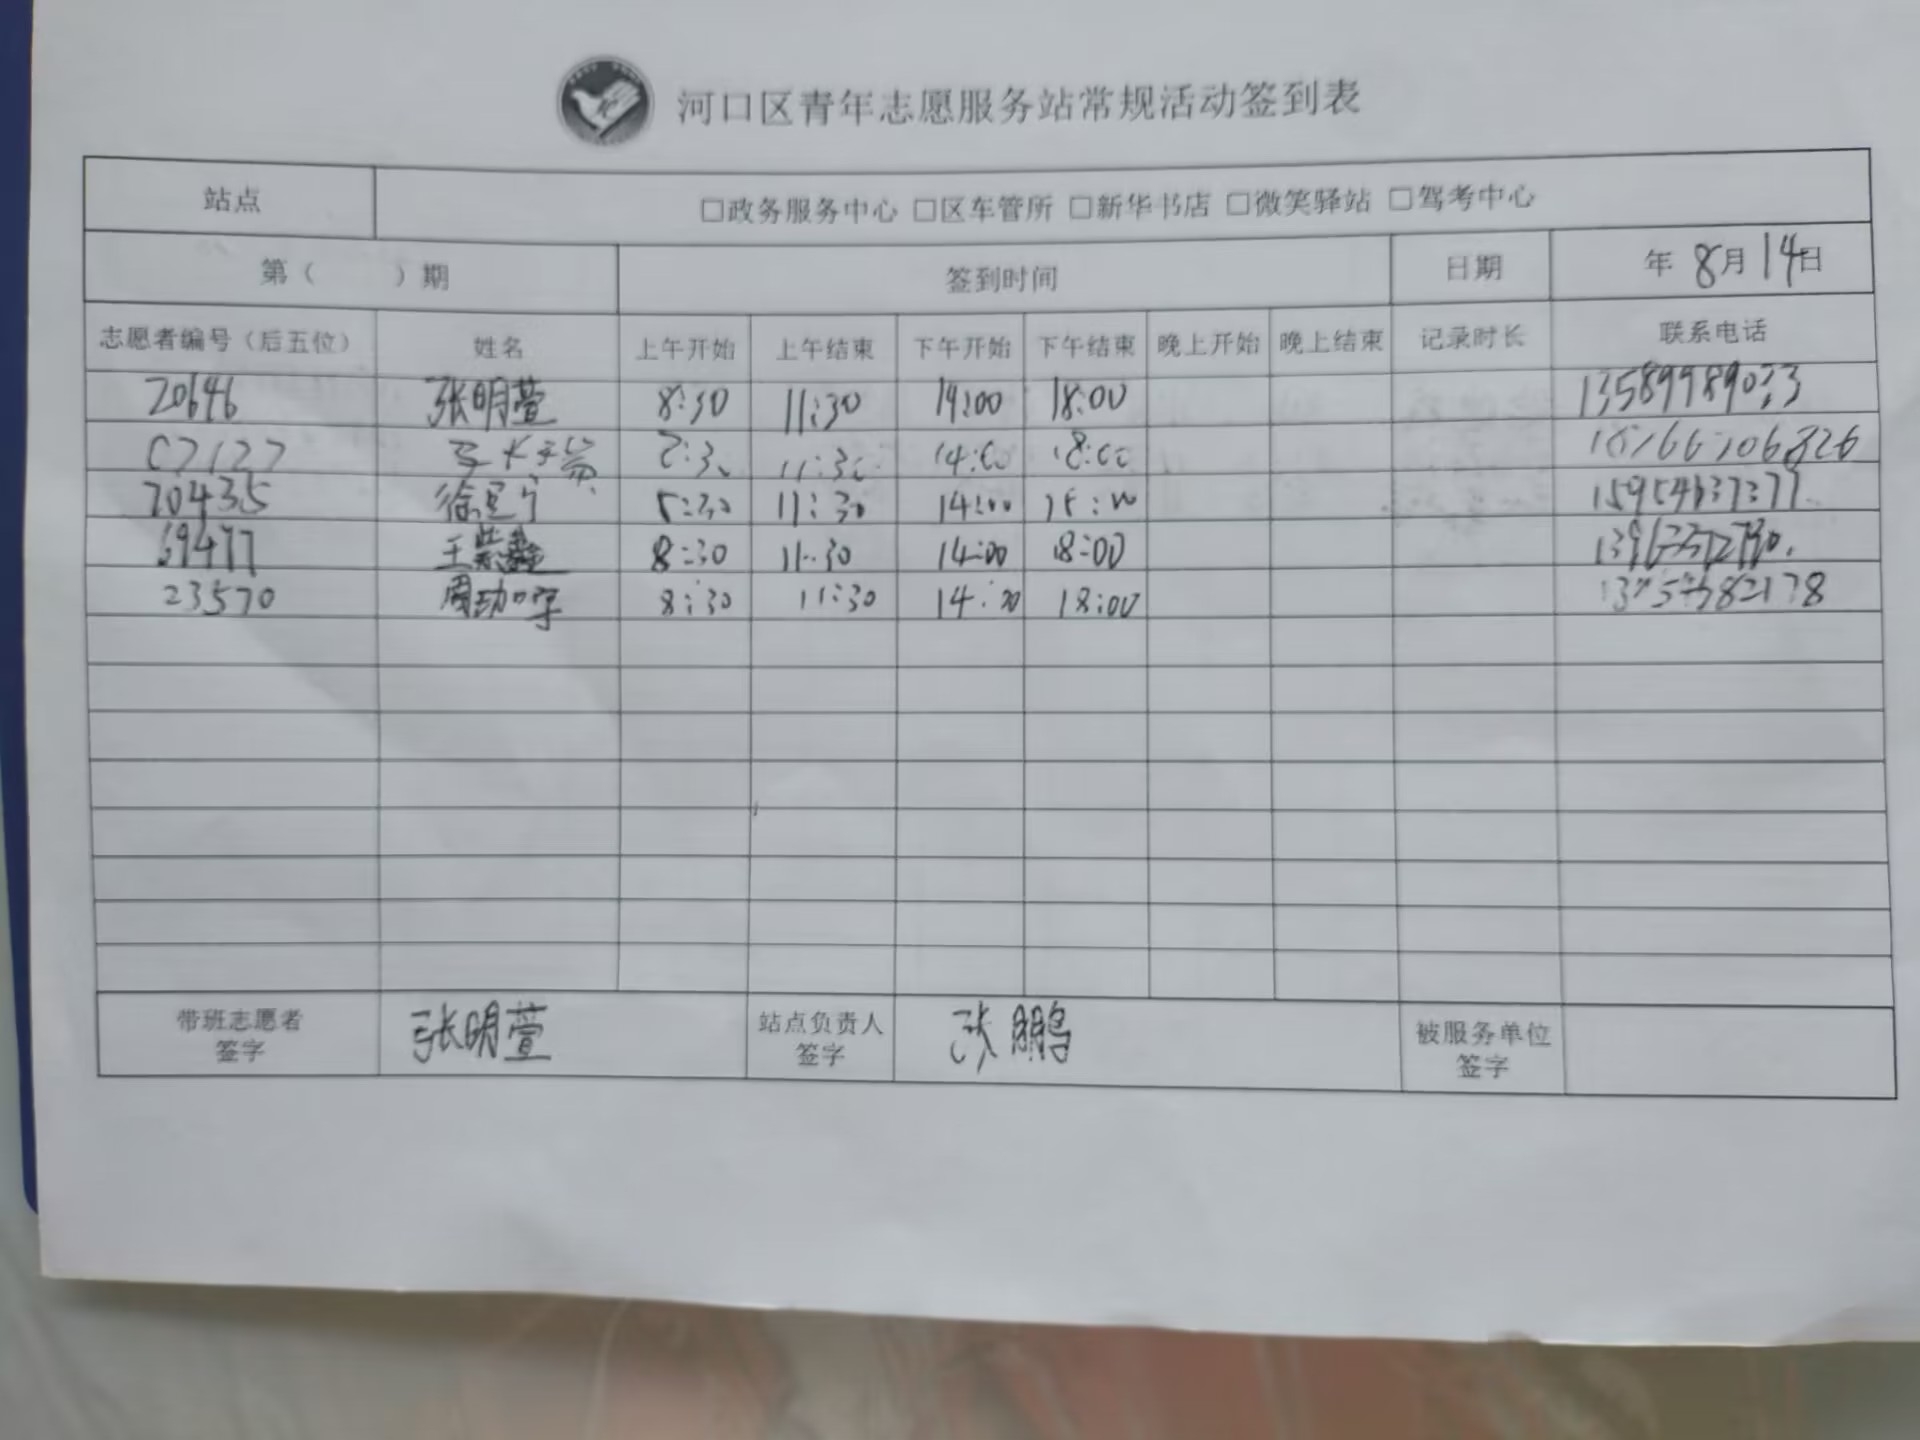 河口区青年志愿服务站常规活动签到表
站点 □政务服务中心 □区车管所 □新华书店 □微笑驿站 □驾考中心
第（ ）期 签到时间 日期 年 8月14日
志愿者编号（后五位） 姓名 上午开始 上午结束 下午开始 下午结束 晚上开始 晚上结束 记录时长 联系电话
20646 张明萱 8:30 11:30 14:00 18:00 13589989033
11:30 14:00 18:00
70435 11:30 14:00
69477 8:30 11:30 14:00 18:00
23570 8:30 11:30 14:00 18:00
带班志愿者签字 张明萱 站点负责人签字 张鹏 被服务单位签字